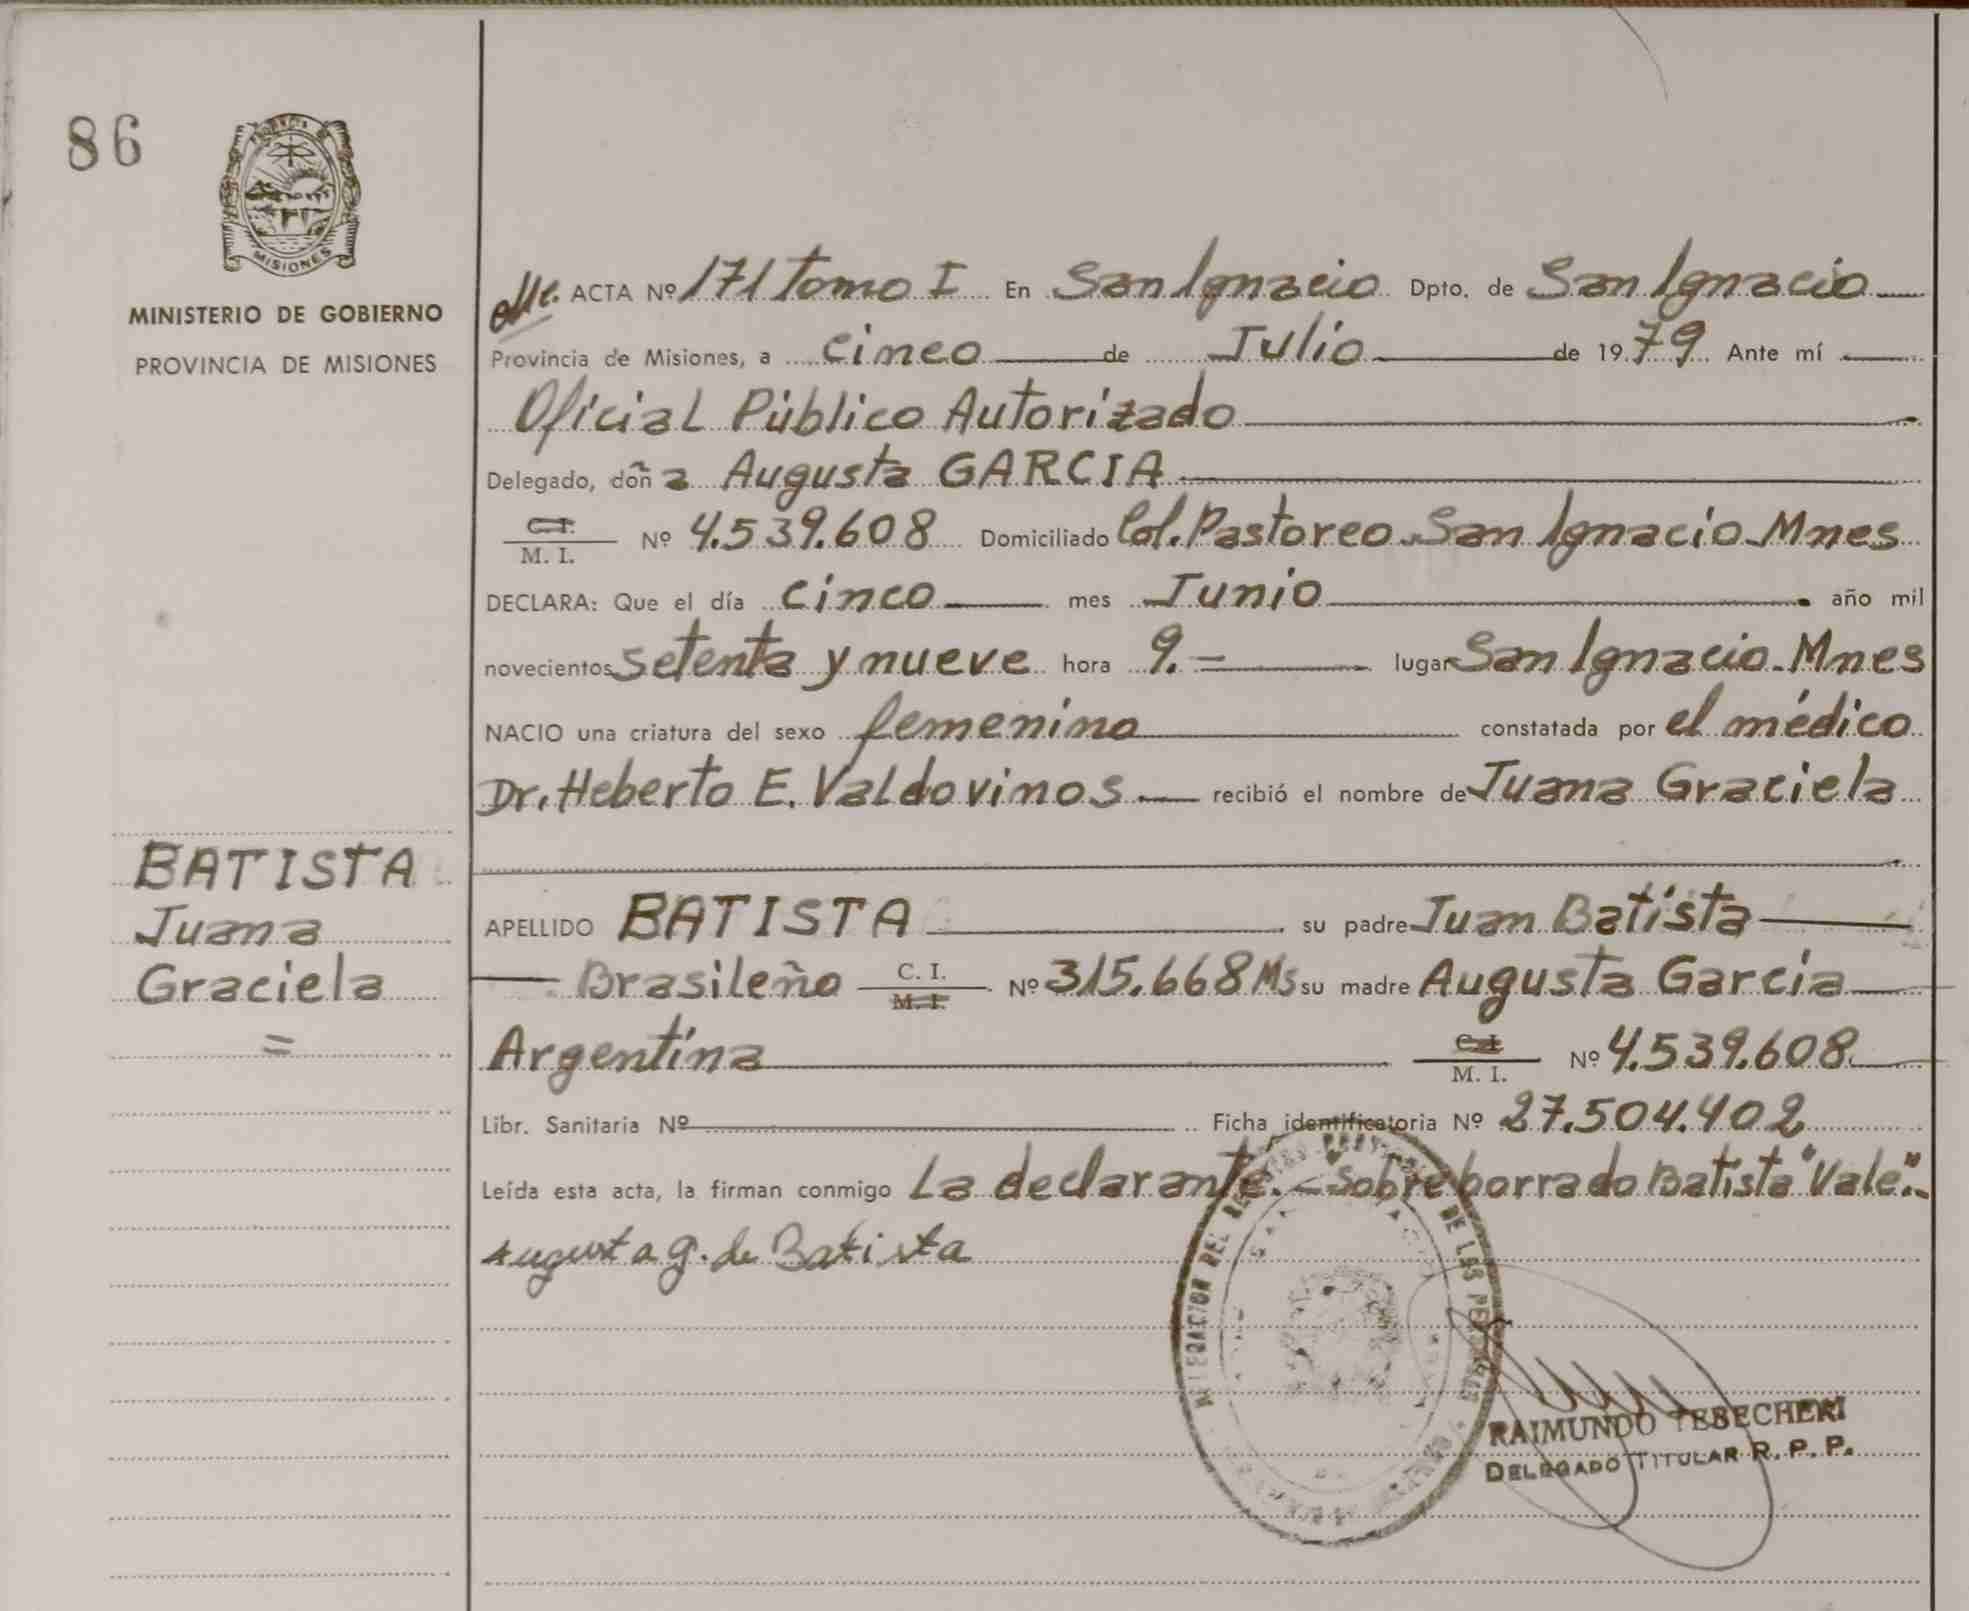 86
PROVINCIA DE
MISIONES
MINISTERIO DE GOBIERNO
PROVINCIA DE MISIONES
BATISTA
Juana
Graciela
=
ACTA Nº 171 Tomo I En San Ignacio Dpto. de San Ignacio
Provincia de Misiones, a cinco de Julio de 1979 Ante mí
Oficial Público Autorizado
Delegado, doña Augusta GARCIA
C. I.
M. I. Nº 4.539.608 Domiciliado Col. Pastoreo San Ignacio Mnes
DECLARA: Que el día cinco mes Junio año mil
novecientos setenta y nueve hora 9.= lugar San Ignacio. Mnes
NACIO una criatura del sexo femenino constatada por el médico
Dr. Heberto E. Valdovinos recibió el nombre de Juana Graciela
APELLIDO BATISTA su padre Juan Batista
Brasileño C. I. M. I. Nº 315.668 Ms su madre Augusta García
Argentína C. I. M. I. Nº 4.539.608
Libr. Sanitaria Nº Ficha identificatoria Nº 27.504.402
Leída esta acta, la firman conmigo La declarante.- Sobre borrado Batista "Vale".-
Augusta g. de Batista
DEL DE LAS PERSONAS
RAIMUNDO TEBECHERI
DELEGADO TITULAR R. P. P.